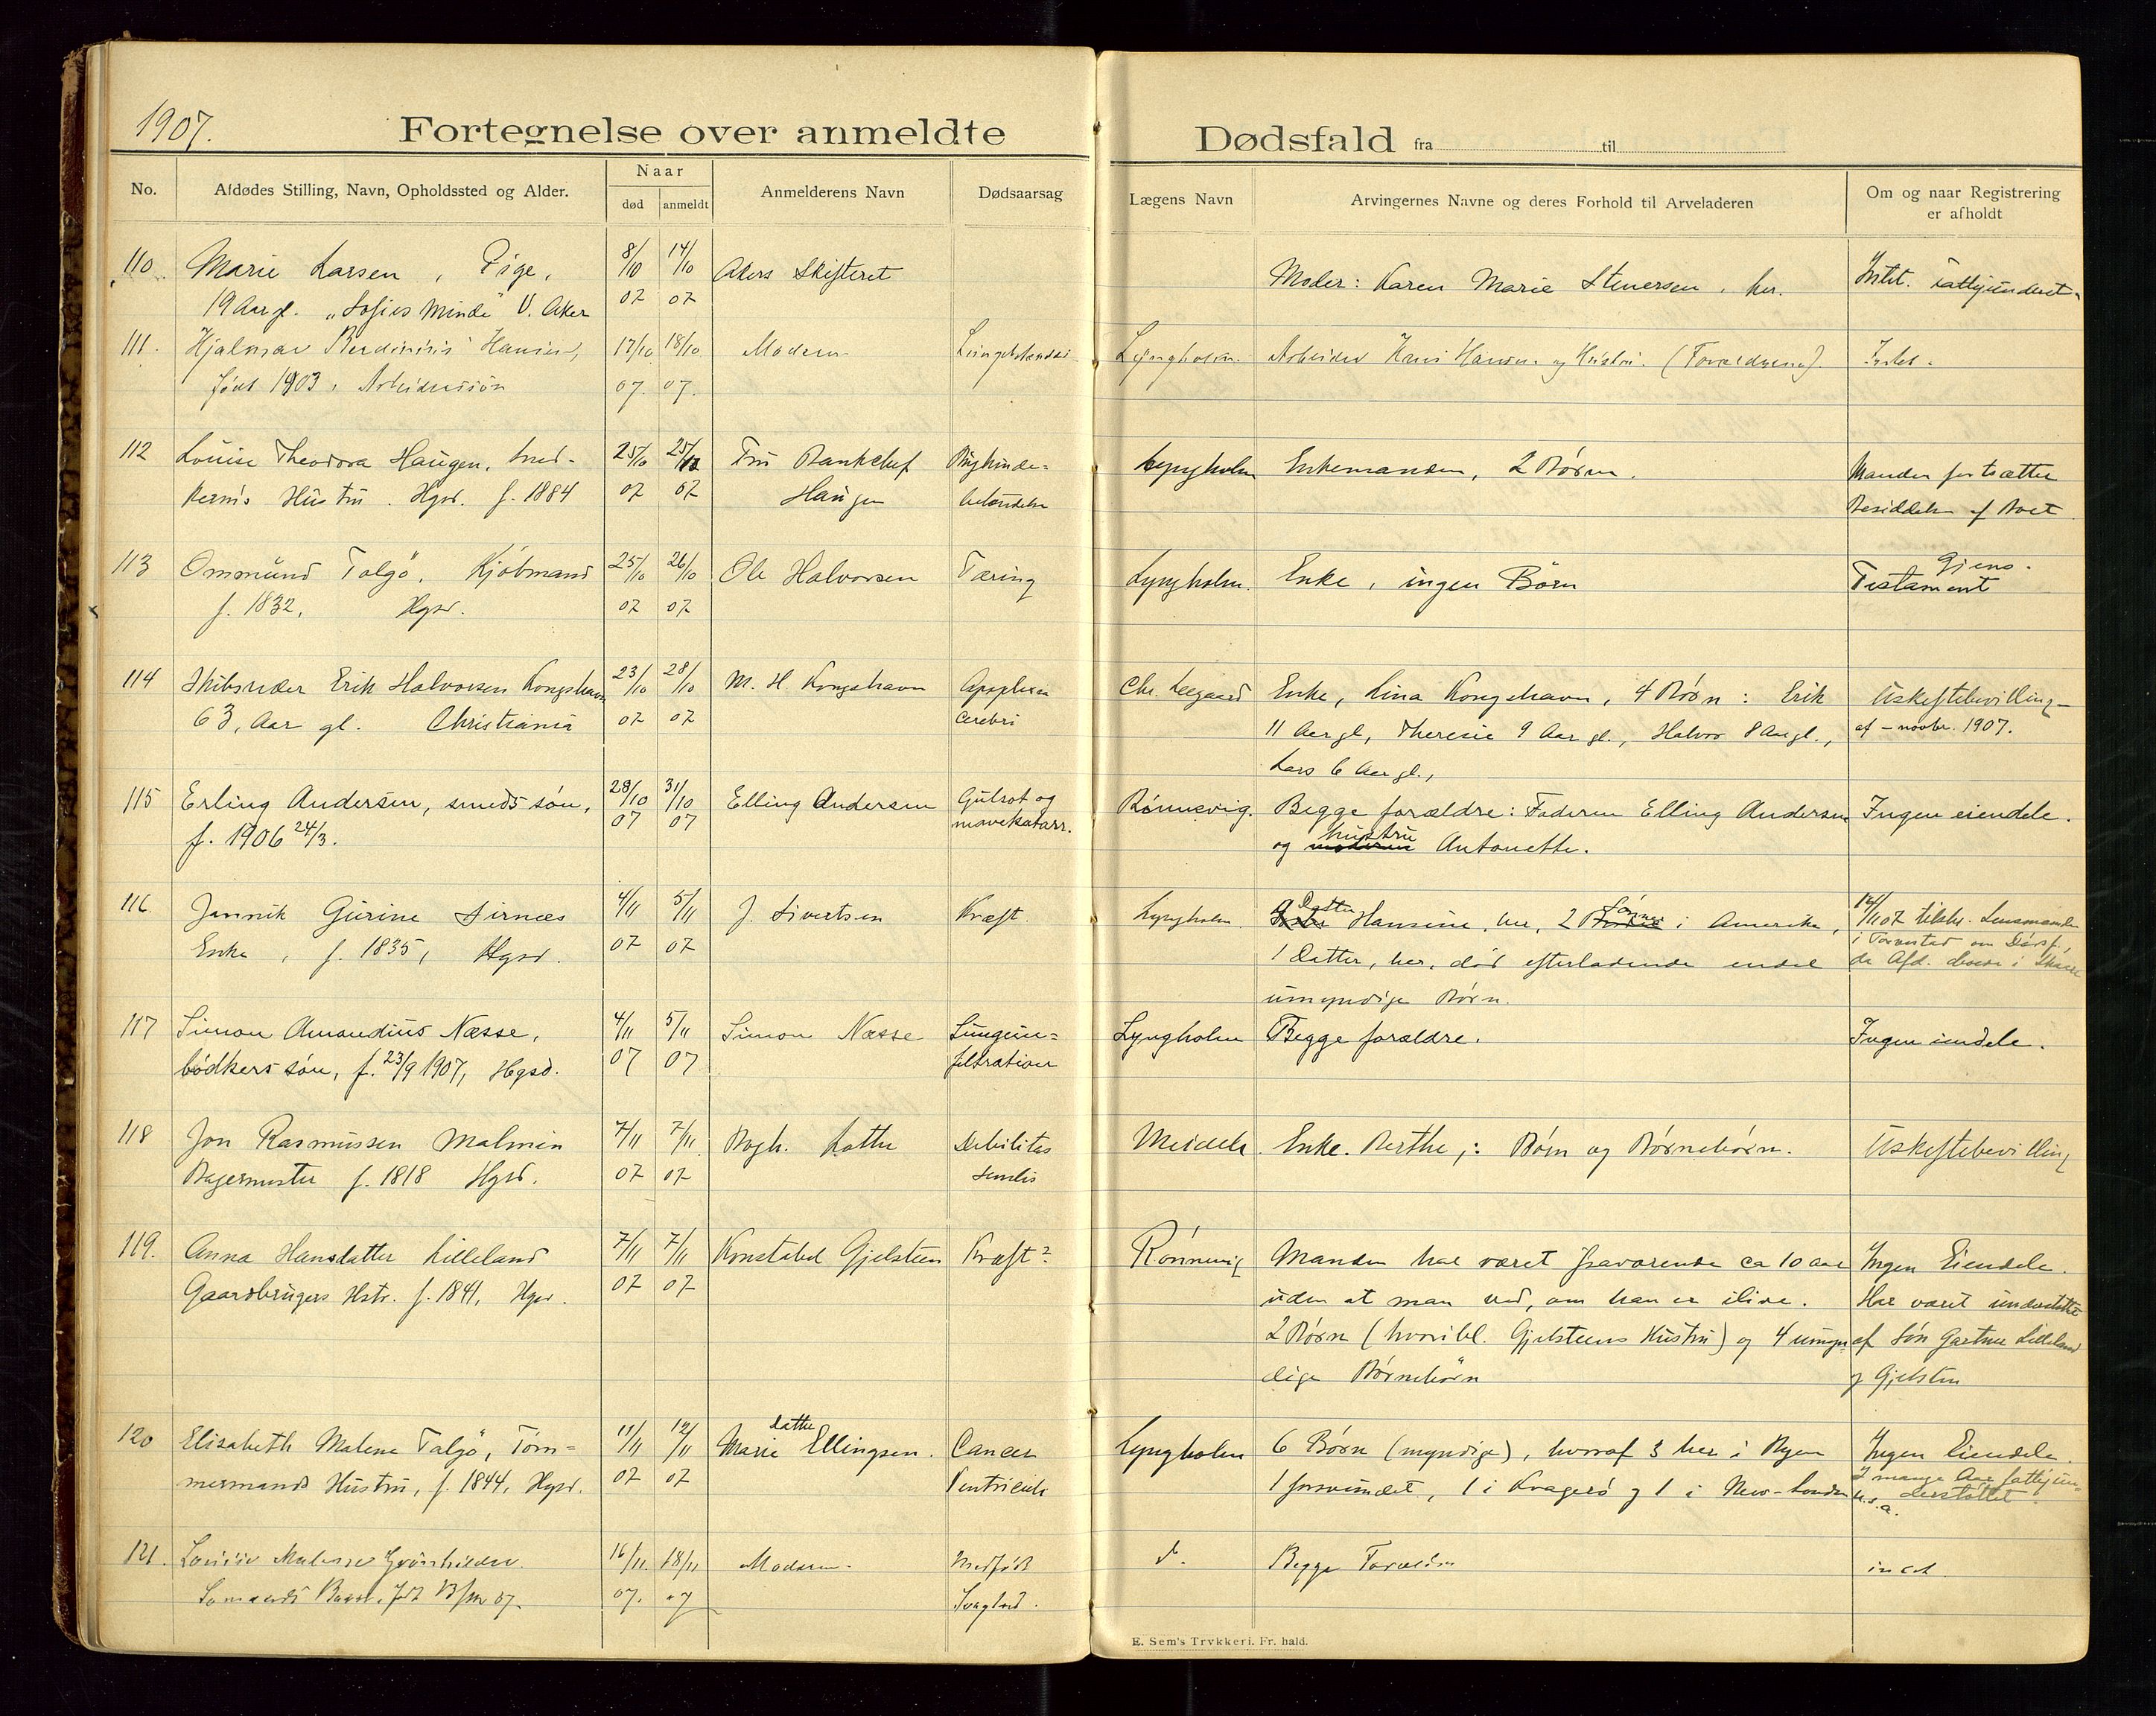 1907.
Fortegnelse over anmeldte Dødsfald fra til
No.
Afdødes Stilling, Navn, Opholdssted og Alder.
Naar
død
anmeldt
Anmelderens Navn
Dødsaarsag
Lægens Navn
Arvingernes Navne og deres Forhold til Arveladeren
Om og naar Registrering
er afholdt
110 Marie Larsen, Pige, 8/10 14/10 Akers Skifteret Moder: Karen Marie Stenersen, her. Intet.
19 Aar gl. "Sofies Minde" V. Aker 07 07
111. Hjalmar Hansen, 17/10 18/10 Moderen Lyngholm. Arbeider Hansen og Hustru. (Forældrene). Intet.
født 1903, Arbeidersøn 07. 07.
112 Louise Theodora Haugen, 25/10 25/10 Fru Bankchef Lyngholm Enkemanden, 2 Børn. Manden fortsætter
Hustru. Hgsd. f. 1884 07 07 Haugen Besiddelse af Boet
113 Ommund Talgö, Kjöbmand 25/10 26/10 Ole Halvorsen Tæring Lyngholm. Enke, ingen Börn Gjens.
Testament
f. 1832, Hgsd. 07 07
114 Skibsreder Erik Halvorsen Kongshavn 23/10 28/10 M. H. Kongshavn Apoplexia Chr. Leegaard Enke, Lina Kongshavn, 4 Børn: Erik Uskiftebevilling
63, Aar gl. Christiania 07 07 cerebri 11 Aar gl, Theresie 9 Aar gl., Halvor 8 Aar gl., af – novbr. 1907.
Lars 6 Aar gl.,
115 Erling Andersen, smeds søn, 28/10 31/10 Elling Andersen Gulsot og Rönnevig. Begge forældre: Faderen Elling Andersen Ingen eiendele.
f. 1906 24/3. 07 07 mavekatarr. og moderen hustru Antonette.
116. Jannik Gurine Sirnæs 4/11 5/11 J. Sivertsen Kræft. Lyngholm Datter Hansine, her, 2 Sønner i Amerika,
Enke, f. 1835, Hgsd. 07 07 1 Datter, her, død efterladende endel
umyndige Børn.
117 Simon Amandius Næsse, 4/11 5/11 Simon Næsse Lungein= Lyngholm Begge forældre. Ingen eiendele.
bødkers søn, f. 23/9 1907, Hgsd. 07 07 filtration
118 Jon Rasmussen Malmin 7/11 7/11 Debilitas Meidell Enke. Berthe,: Børn og Børnebørn. Uskiftebevilling
Bagermester f. 1818 Hgsd. 07 07 senilis
119. Anna Hansdatter Lilleland 7/11 7/11 Konstabel Gjelsteen Kræft? Rönnevig Manden har været fraværende ca 10 aar Ingen Eiendele.
Gaardbrugers Hstr. f. 1841, Hgsd. 07 07 uden at man ved, om han er ilive. Har været understøttet
2 Børn (hvoribl. Gjelsteens Hustru) og 4 umyn af Søn Gartner Lilleland
dige Børnebörn og Gjelsten
120 Elisabeth Malene Talgö, Töm= 11/11 12/11 datter Marie Ellingsen. Cancer Lyngholm 6 Børn (myndige), hvoraf 3 her i Byen Ingen Eiendele.
mermands Hustru, f. 1844, Hgsd. 07 07 Ventriculi 1 forsvundet, 1 i Kragerø og 1 i New-London U.S.A. I mange Aar fattigun=
derstöttet.
121. 16/11. 18/11 Moderen. Medfødt d. Begge Forældre intet.
07. 07 Svaghed.
E. Sem's Trykkeri. Fr. hald.